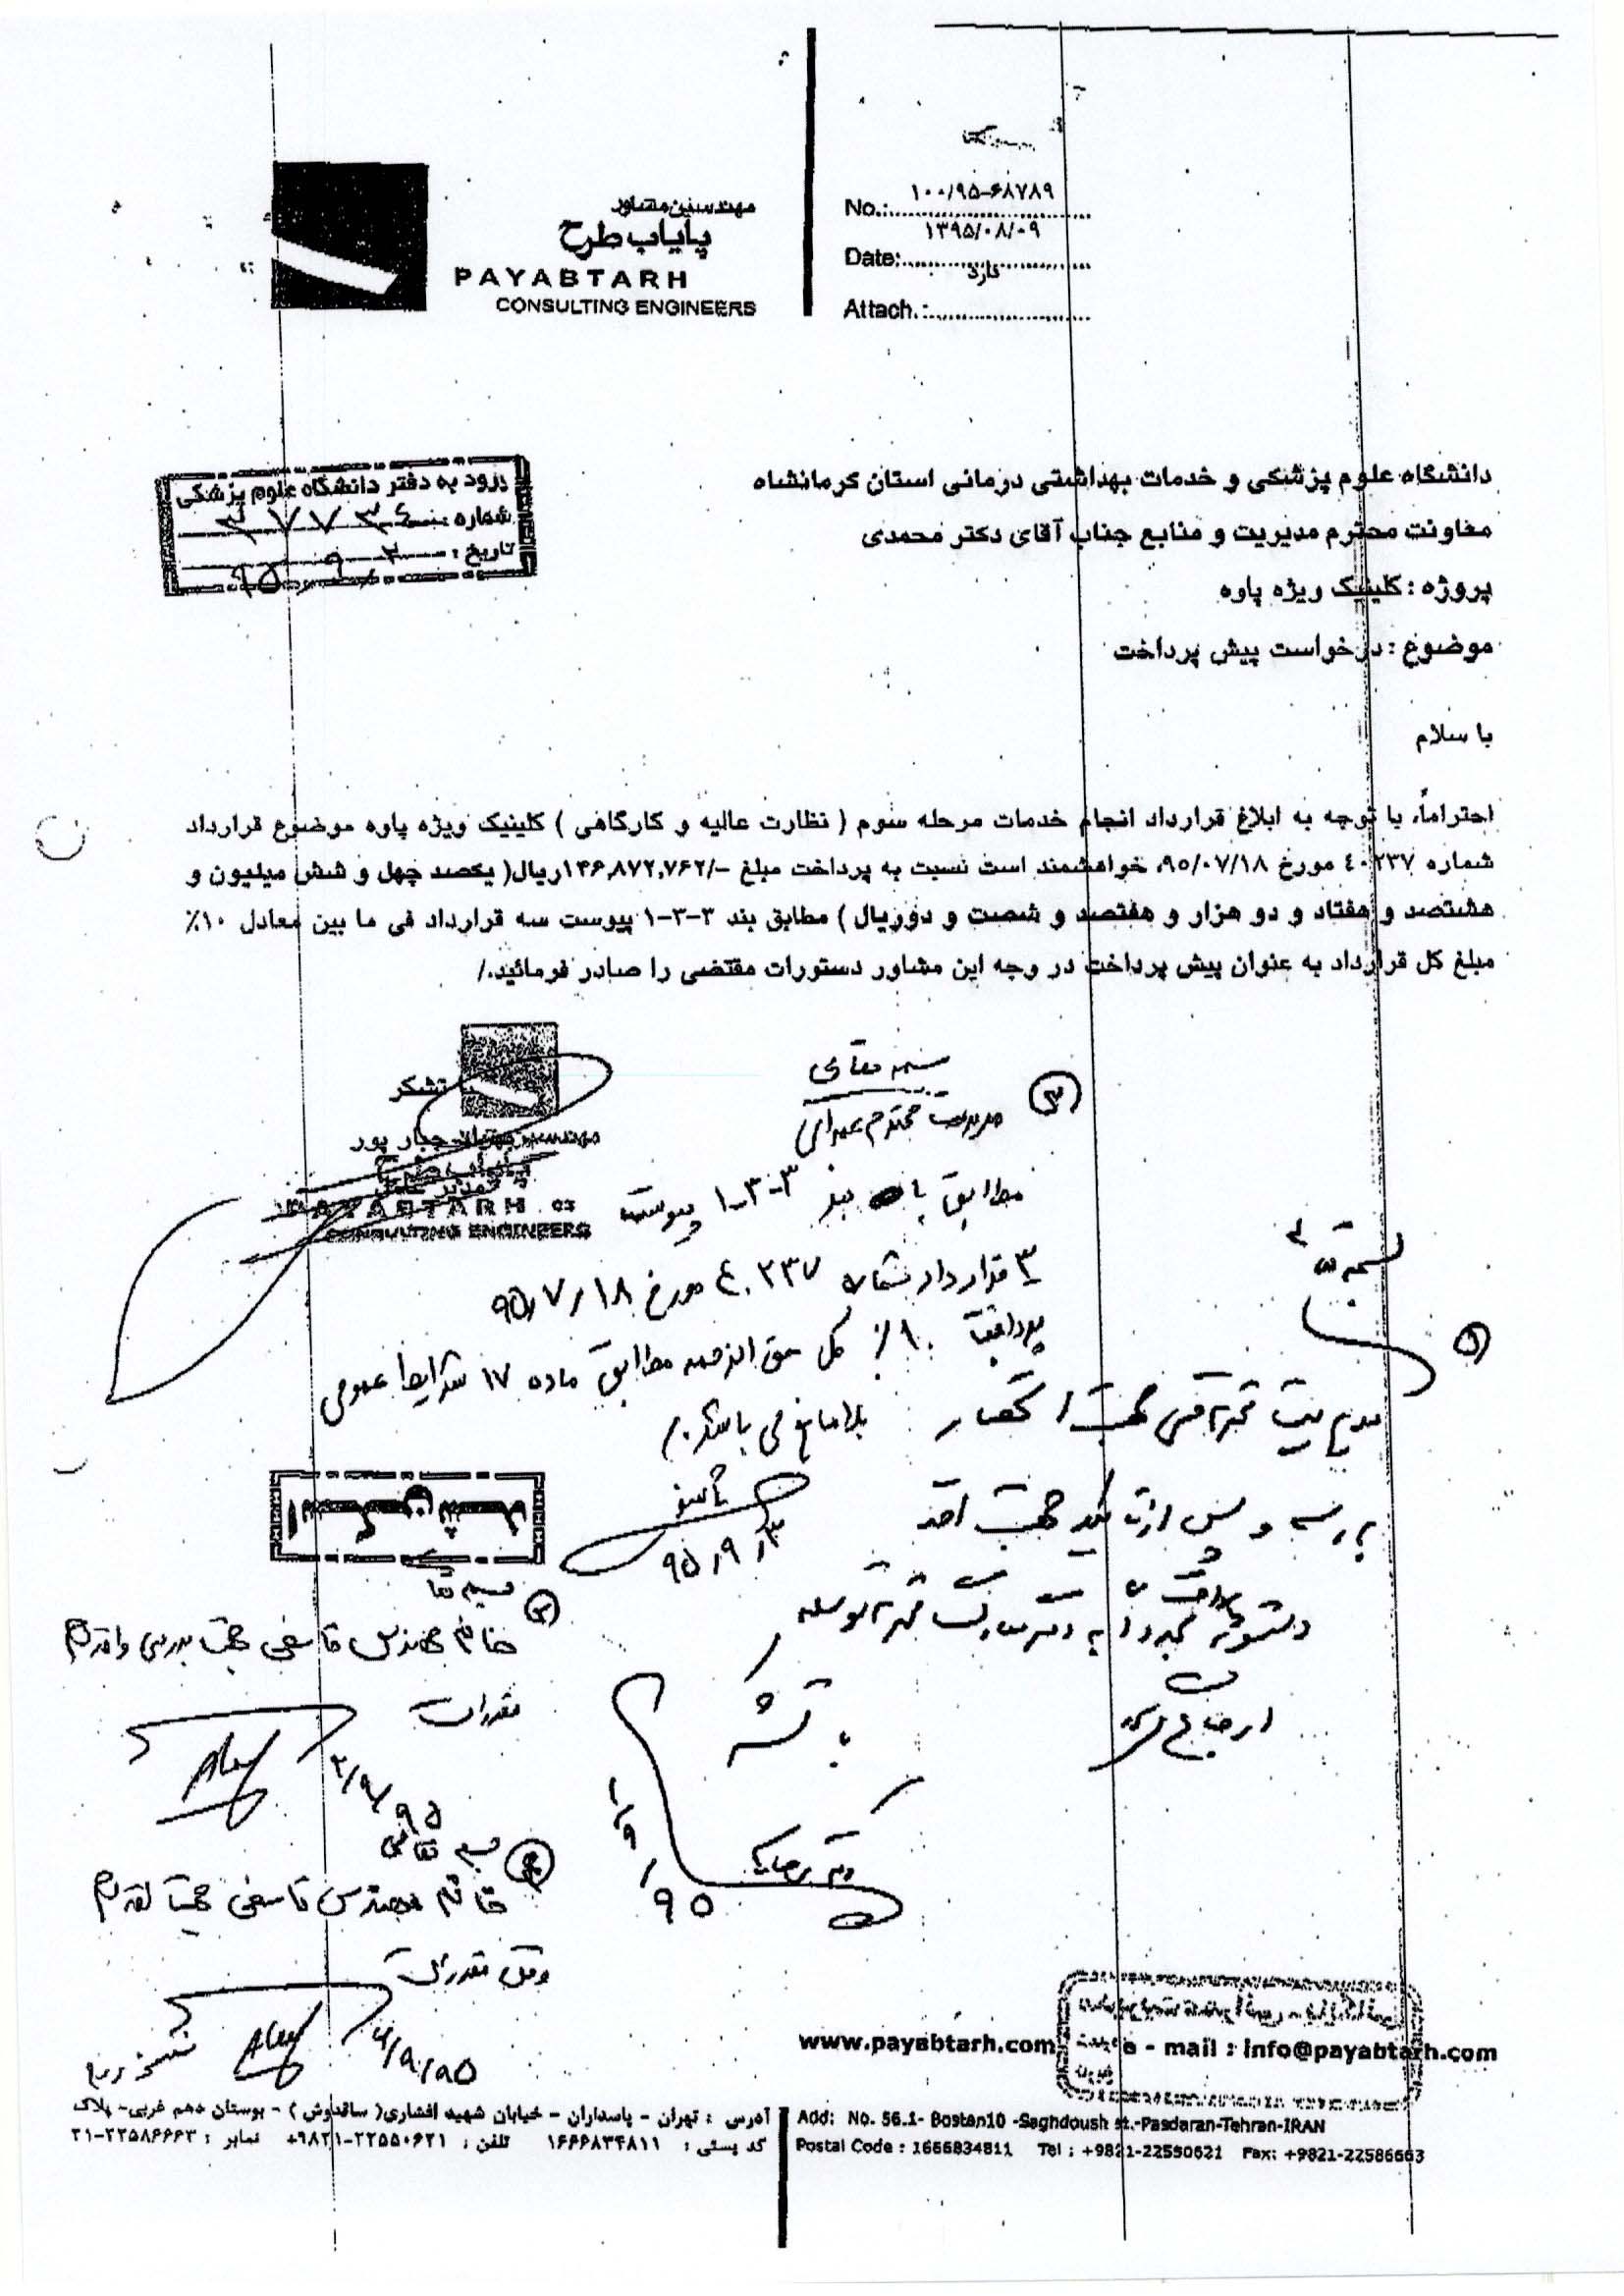 مهندسین مشاور
پایاب طرح
PAYABTARH
CONSULTING ENGINEERS
No.: ۱۰۰/۹۵-۶۸۷۸۹
Date: ۱۳۹۵/۰۸/۰۹
Attach.: ندارد
ورود به دفتر دانشگاه علوم پزشکی
شماره:
تاریخ:
دانشگاه علوم پزشکی و خدمات بهداشتی درمانی استان کرمانشاه
معاونت محترم مدیریت و منابع جناب آقای دکتر محمدی
پروژه : کلینیک ویژه پاوه
موضوع : درخواست پیش پرداخت
با سلام
احتراماً، با توجه به ابلاغ قرارداد انجام خدمات مرحله سوم ( نظارت عالیه و کارگاهی ) کلینیک ویژه پاوه موضوع قرارداد
شماره ۴۰۲۳۷ مورخ ۹۵/۰۷/۱۸، خواهشمند است نسبت به پرداخت مبلغ -/۱۴۶,۸۷۲,۷۶۲ریال( یکصد چهل و شش میلیون و
هشتصد و هفتاد و دو هزار و هفتصد و شصت و دوریال ) مطابق بند ۳-۳-۱ پیوست سه قرارداد فی ما بین معادل ۱۰٪
مبلغ کل قرارداد به عنوان پیش پرداخت در وجه این مشاور دستورات مقتضی را صادر فرمائید./
تشکر
جبار پور
PAYABTARH
CONSULTING ENGINEERS
۳
مدیریت محترم عمرانی
مطابق با بند ۳-۳-۱ پیوست
۳ قرارداد شماره ۴۰۲۳۷ مورخ ۹۵/۷/۱۸
پرداخت ۱۰٪ کل حق الزحمه مطابق ماده ۱۷ شرایط عمومی
بلامانع می باشد./
۹۵/۹/۳
بررسی و پس از تایید جهت اخذ
ارجاع
۲
خانم مهندس قاسمی جهت بررسی و اقدام
مقررات
۹۵/۹/۲
خانم مهندس قاسمی جهت اقدام
وفق مقررات
www.payabtarh.com e - mail : info@payabtarh.com
آدرس : تهران - پاسداران - خیابان شهید افشاری( ساقدوش ) - بوستان دهم غربی- پلاک
کد پستی : ۱۶۶۶۸۳۴۸۱۱ تلفن : ۲۲۵۵۰۶۲۱-۹۸۲۱+ نمابر : ۲۲۵۸۶۶۶۳-۲۱
Add: No. 56.1- Bostan10 -Saghdoush st.-Pasdaran-Tehran-IRAN
Postal Code : 1666834811 Tel : +9821-22550621 Fax: +9821-22586663